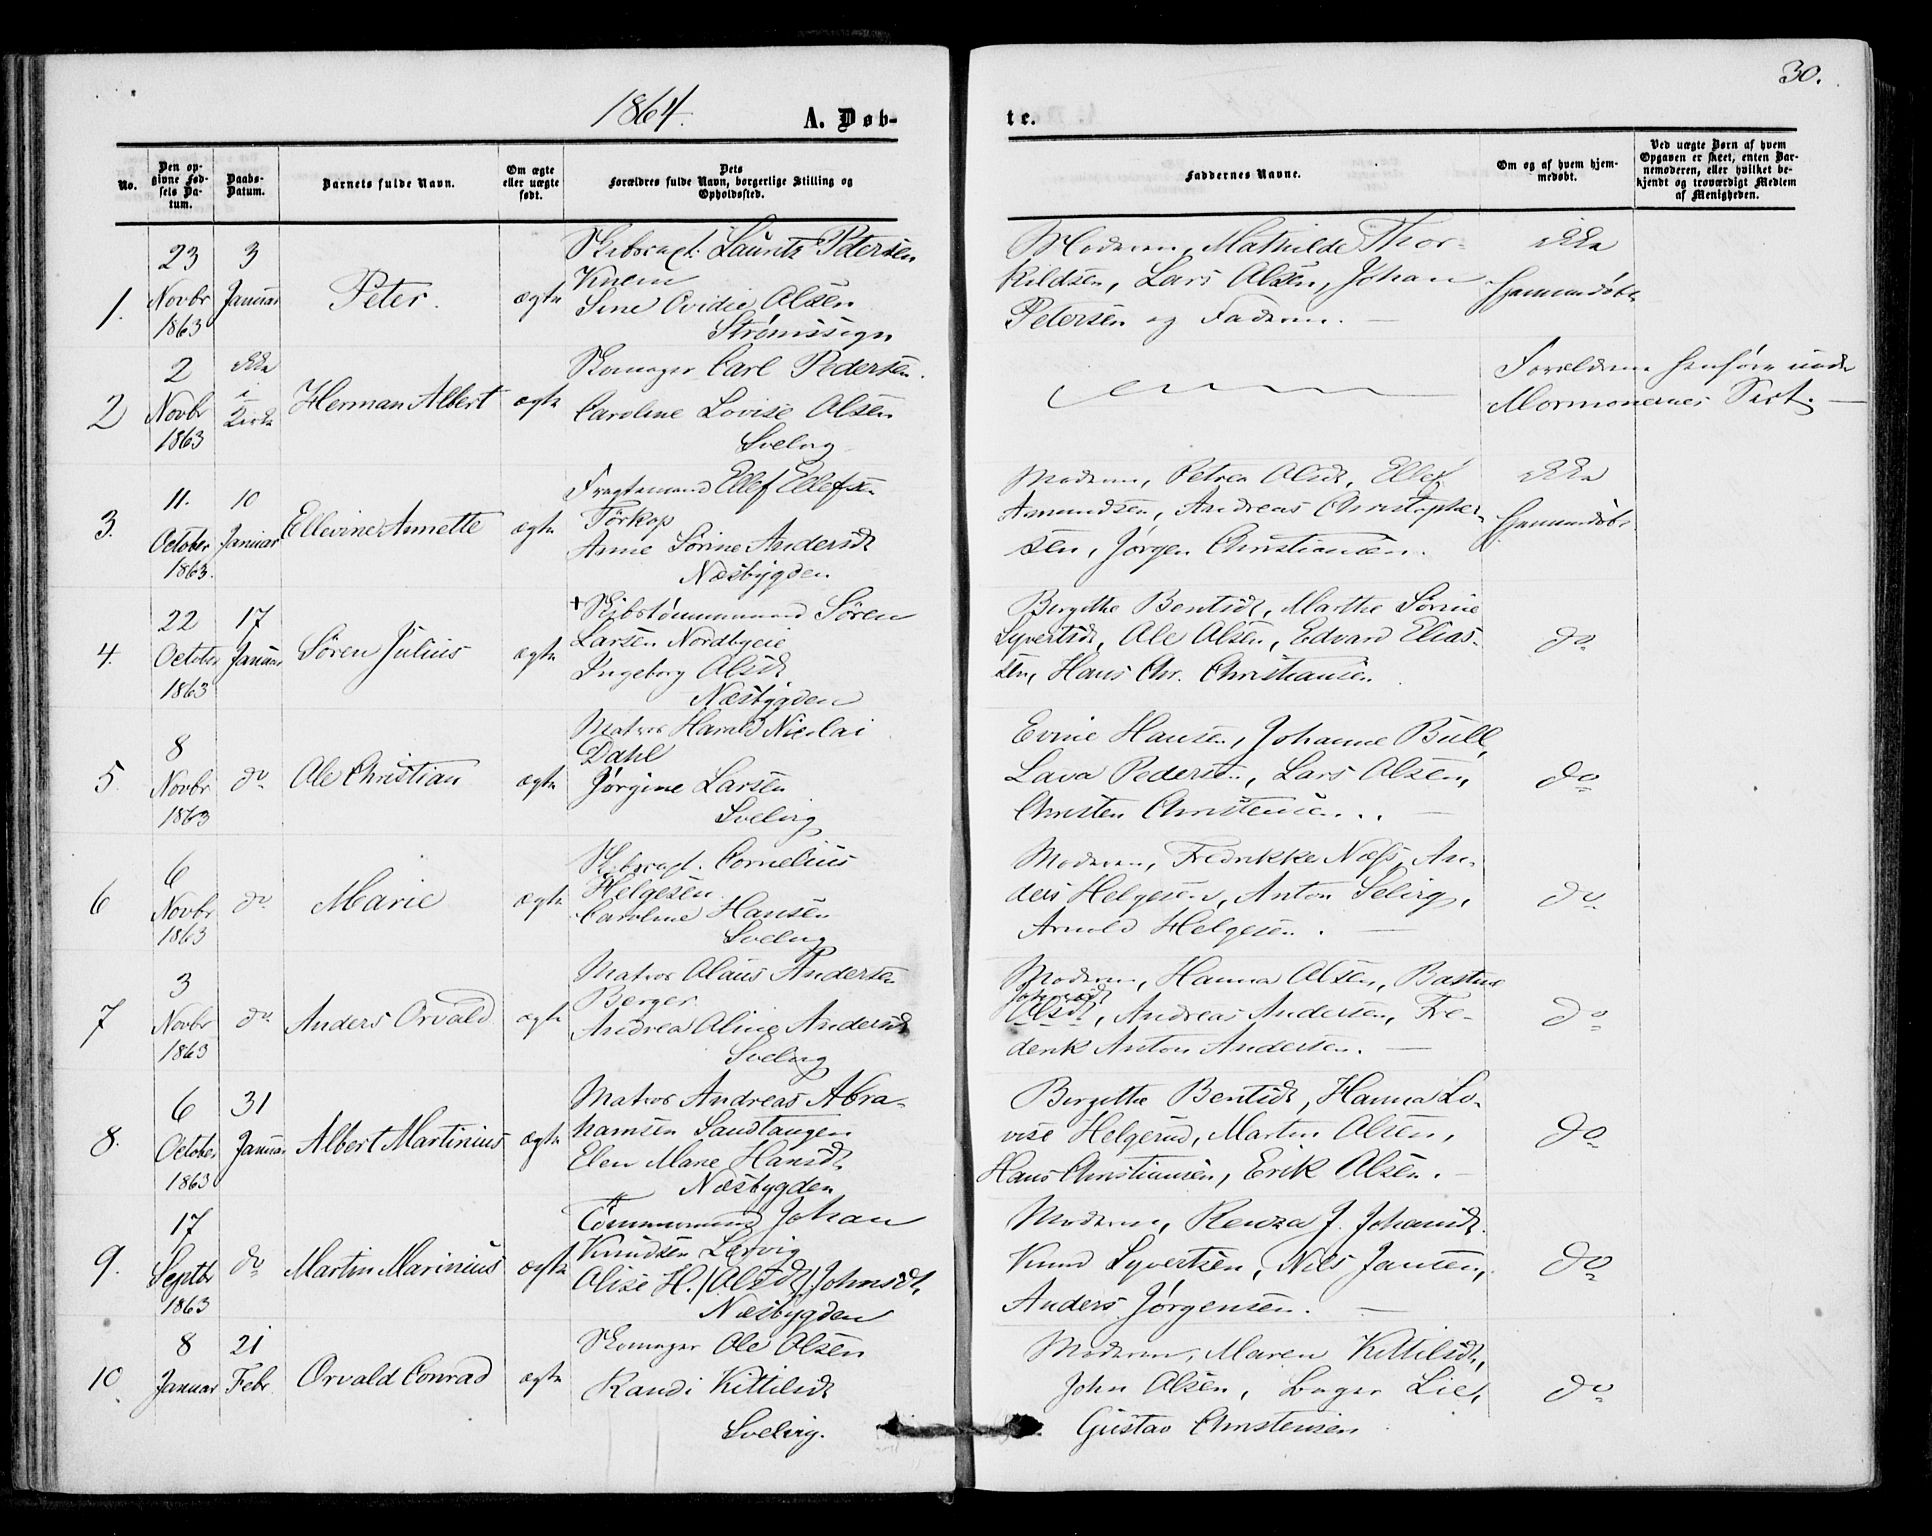 30.
1864.
A. Døb-
te.
No.
Den op-
givne Fød-
sels Da-
tum.
Daabs-
Datum.
Barnets fulde Navn.
Om ægte
eller uægte
født.
Dets
Forældres fulde Navn, borgerlige Stilling og
Opholdssted.
Faddernes Navne.
Om og af hvem hjem-
medøbt.
Ved uægte Børn af hvem
Opgaven er skeet, enten Bar-
nemoderen, eller hvilket be-
kjendt og troværdigt Medlem
af Menigheden.
1.
23
Novbr
1863
3
Januar
Peter.
ægte
Skibscapt. Lauritz Petersen
Knem
Sine Ovidie Olsen
Strømssogn
Moderen, Mathilde Thor-
kildsen, Lars Olsen, Johan
Petersen og Faderen. —
ikke
hjemmedøbt
2
2
Novbr
1863
ikke
i
Kirke
Herman Albert
ægte
Skomager Carl Pedersen.
Caroline Lovise Olsen
Svelvig
Forældrene henhøre under
Mormonernes Sect. —
3.
11.
October
1863.
10
Januar
Ellevine Annette
ægte
Fragtemand Ellef Ellefsen
Tørkop
Anne Sørine Andersdt
Næsbygden
Moderen, Petrea Olsdt, Ellef
Amundsen, Andreas Christopher-
sen, Jørgen Christiansen.
ikke
hjemmedøbt
4.
22
October
1863
17
Januar
Søren Julius
ægte
+ Skibstømmermand Søren
Larsen Nordbyeie
Ingeborg Olsdt
Næsbygden
Bergithe Bentsdt, Marthe Sørine
Syvertsdt, Ole Olsen, Edvard Elias-
sen, Hans Chr. Christiansen.
do
5.
8
Novbr
1863
do
Ole Christian
ægte
Matros Harald Nicolai
Dahl
Jørgine Larsen
Svelvig
Evine Hansen, Johanne Bull,
Lava Pedersen, Lars Olsen,
Christen Christensen. . —
do
6
6
Novbr
1863
do
Marie
ægte
Skibscapt. Cornelius
Helgesen
Caroline Hansen
Svelvig
Moderen, Fredrikke Næss, An-
ders Helgesen, Anton Selvig,
Arnold Helgesen. —
do
7
3
Novbr
1863
do
Anders Orvald
ægte
Matros Olaus Andersen
Berger
Andrea Aline Andersdt
Svelvig
Moderen, Hanna Olsen, Bastine
Olsdt, Andreas Andersen, Fre-
derik Anton Andersen. —
do
8.
6
October
1863
31
Januar
Albert Martinius
ægte
Matros Andreas Abra-
hamsen Sandtangen
Elen Marie Hansdt
Næsbygden
Bergithe Bentsdt, Hanna Lo-
vise Helgerud, Martin Olsen,
Hans Christiansen, Erik Olsen. —
do
9.
17
Septbr
1863
do
Martin Marinius
ægte
Tømmermand Johan
Knudsen Lervig
Olise H. (Olsdt) Johnsdt,
Næsbygden
Moderen, Renza J. Johansdt.
Knud Syvertsen, Nils Jansen,
Anders Jørgensen. —
do
10.
8
Januar
21
Febr
Orvald Conrad
ægte
Skomager Ole Olsen
Randi Kittilsdt
Svelvig.
Moderen, Maren Kittilsdt,
John Olsen, Lie,
Gustav Christensen
do